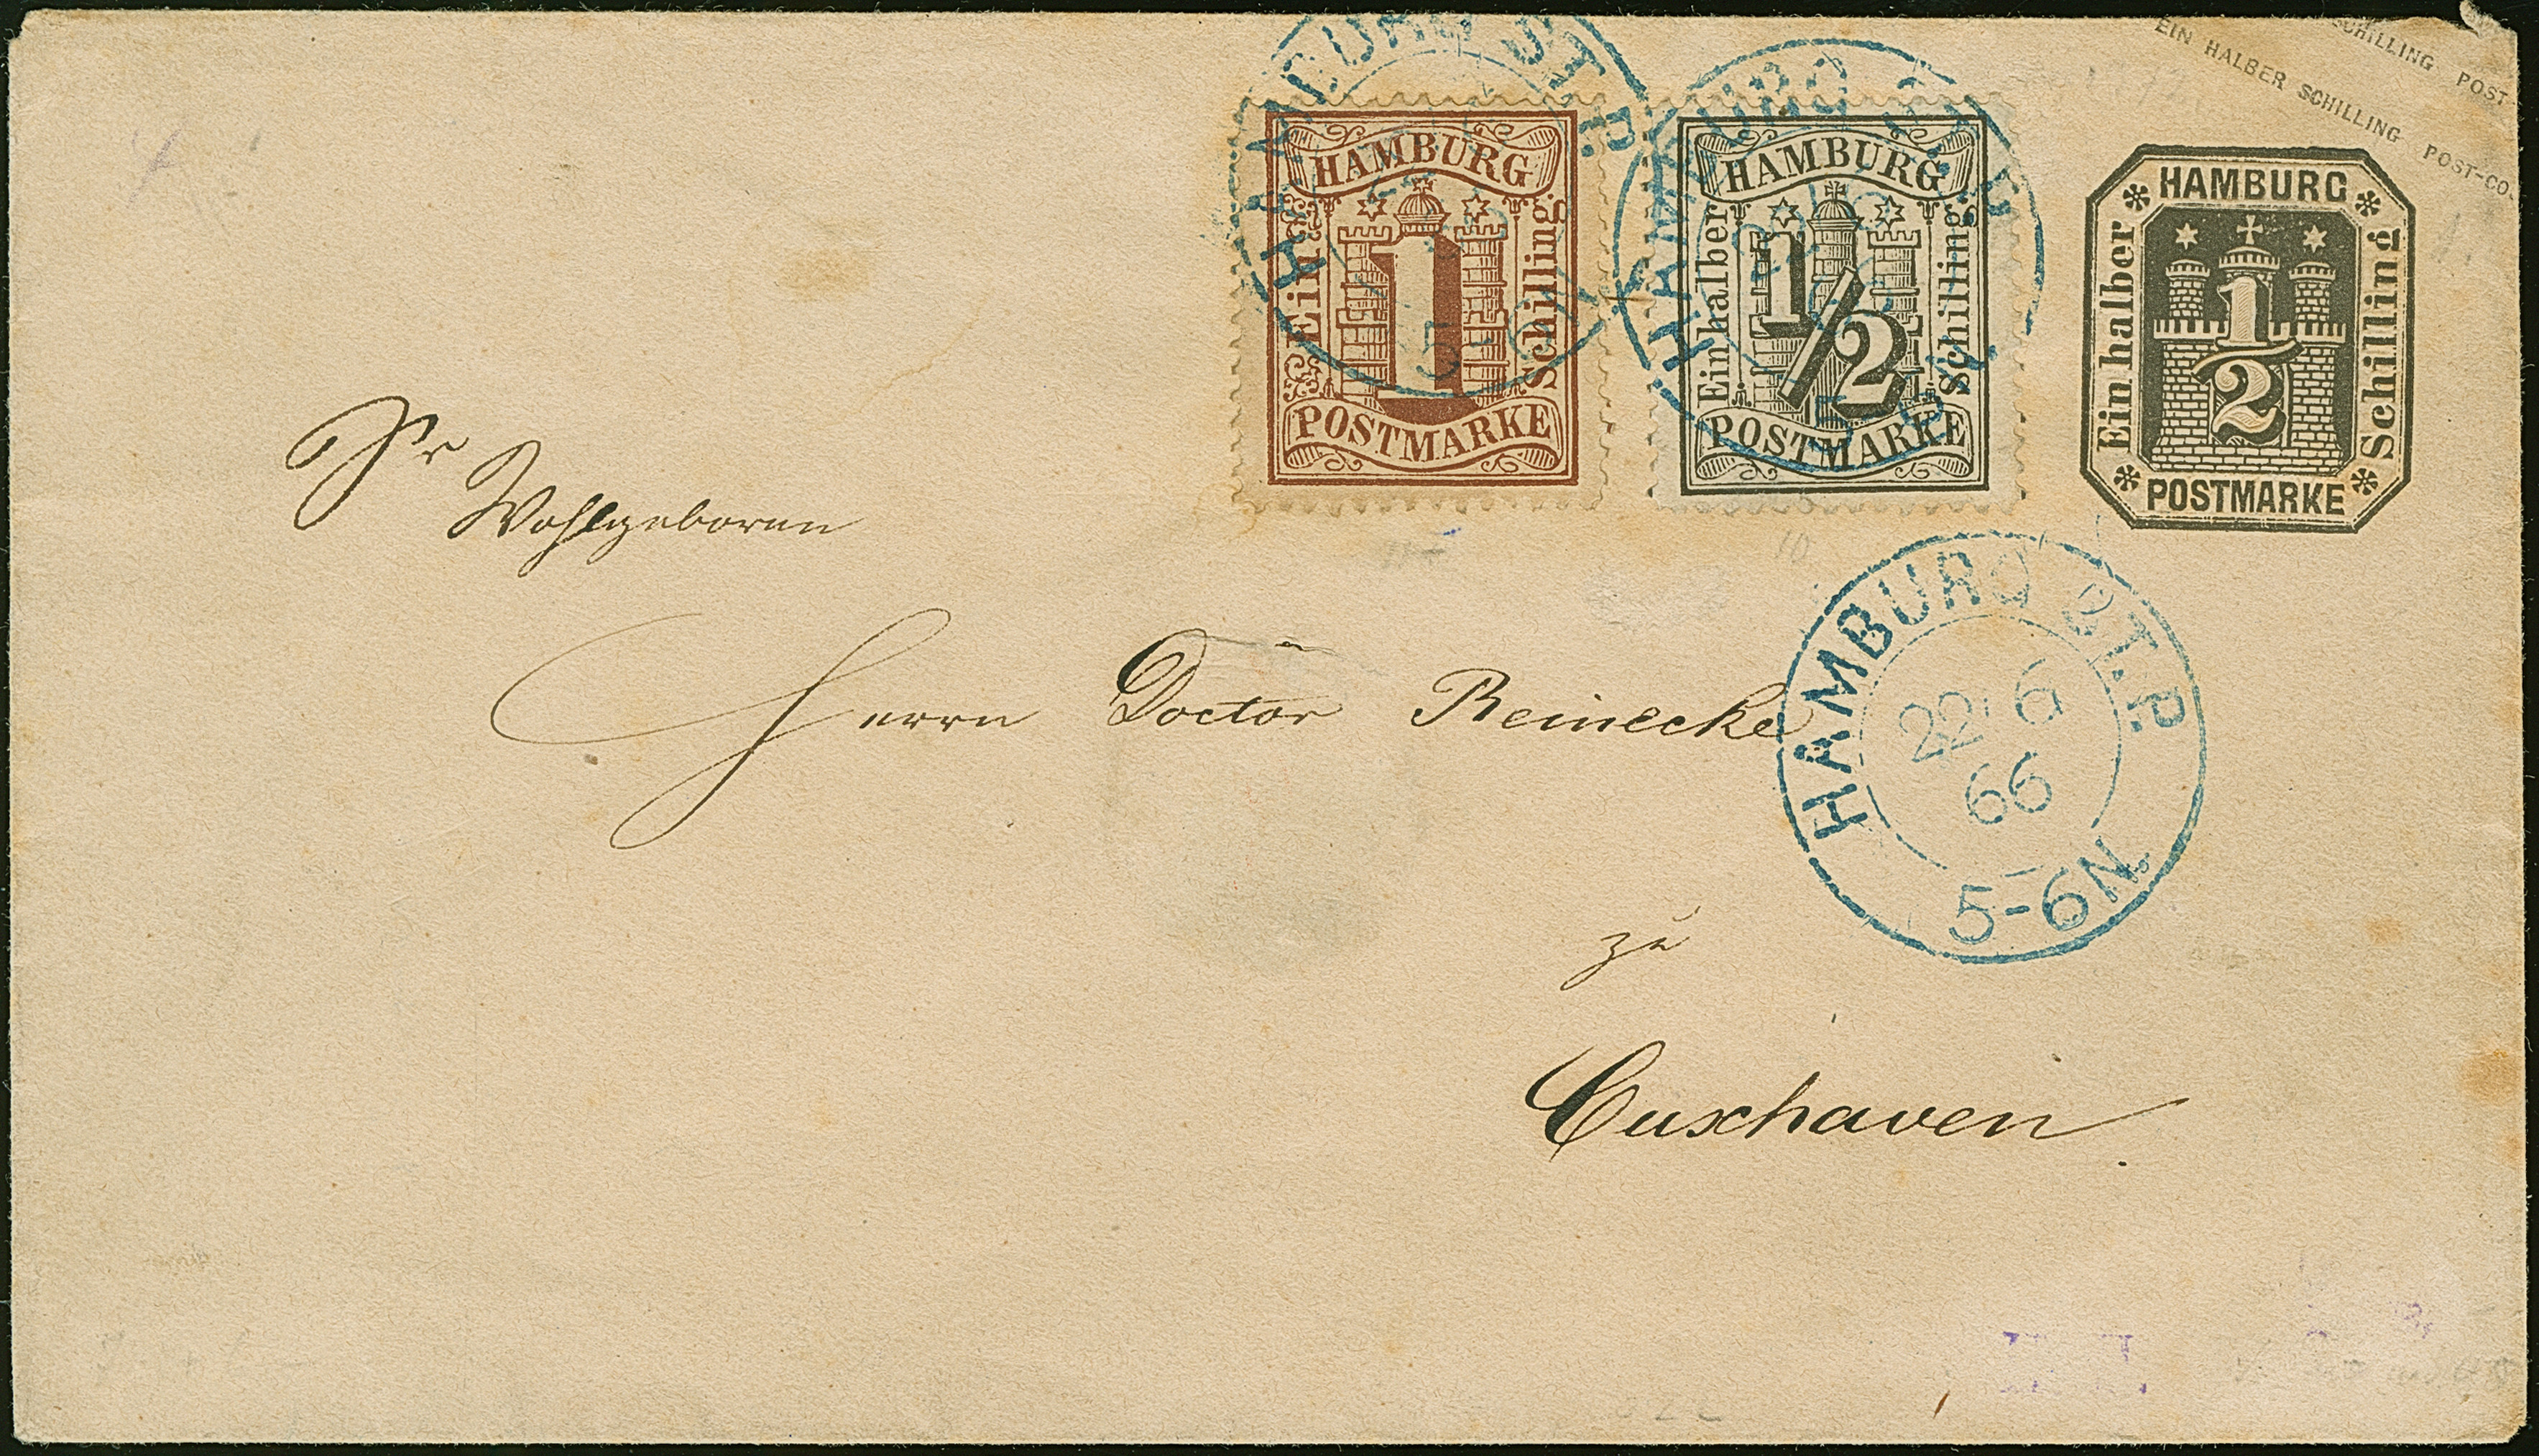 SCHILLING POST
EIN HALBER SCHILLING POST-CO
HAMBURG
Ein
Schilling
1
POSTMARKE
HAMBURG
Einhalber
Schilling
1/2
POSTMARKE
HAMBURG
Ein halber
Schilling
1/2
POSTMARKE
HAMBURG ST.P.
5-6N
HAMBURG ST.P.
5-6N
Sr
Wohlgeboren
Herrn Doctor Reinecke
HAMBURG ST.P.
22 6
66
5-6N.
zu
Cuxhaven